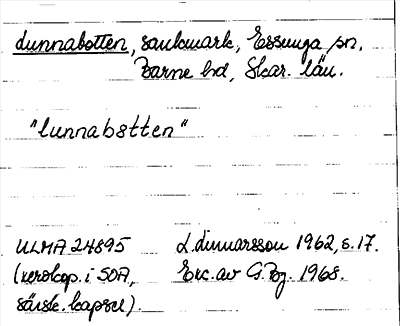 Lunnabotten, sankmark, Essunga sn,
Barne hd, Skar. län.
"lunnabåtten"
ULMA 24895 L. Linnarsson 1962, s. 17.
(xerokop. i SOA, Exc. av G. Bg. 1968.
särsk. kapsel).